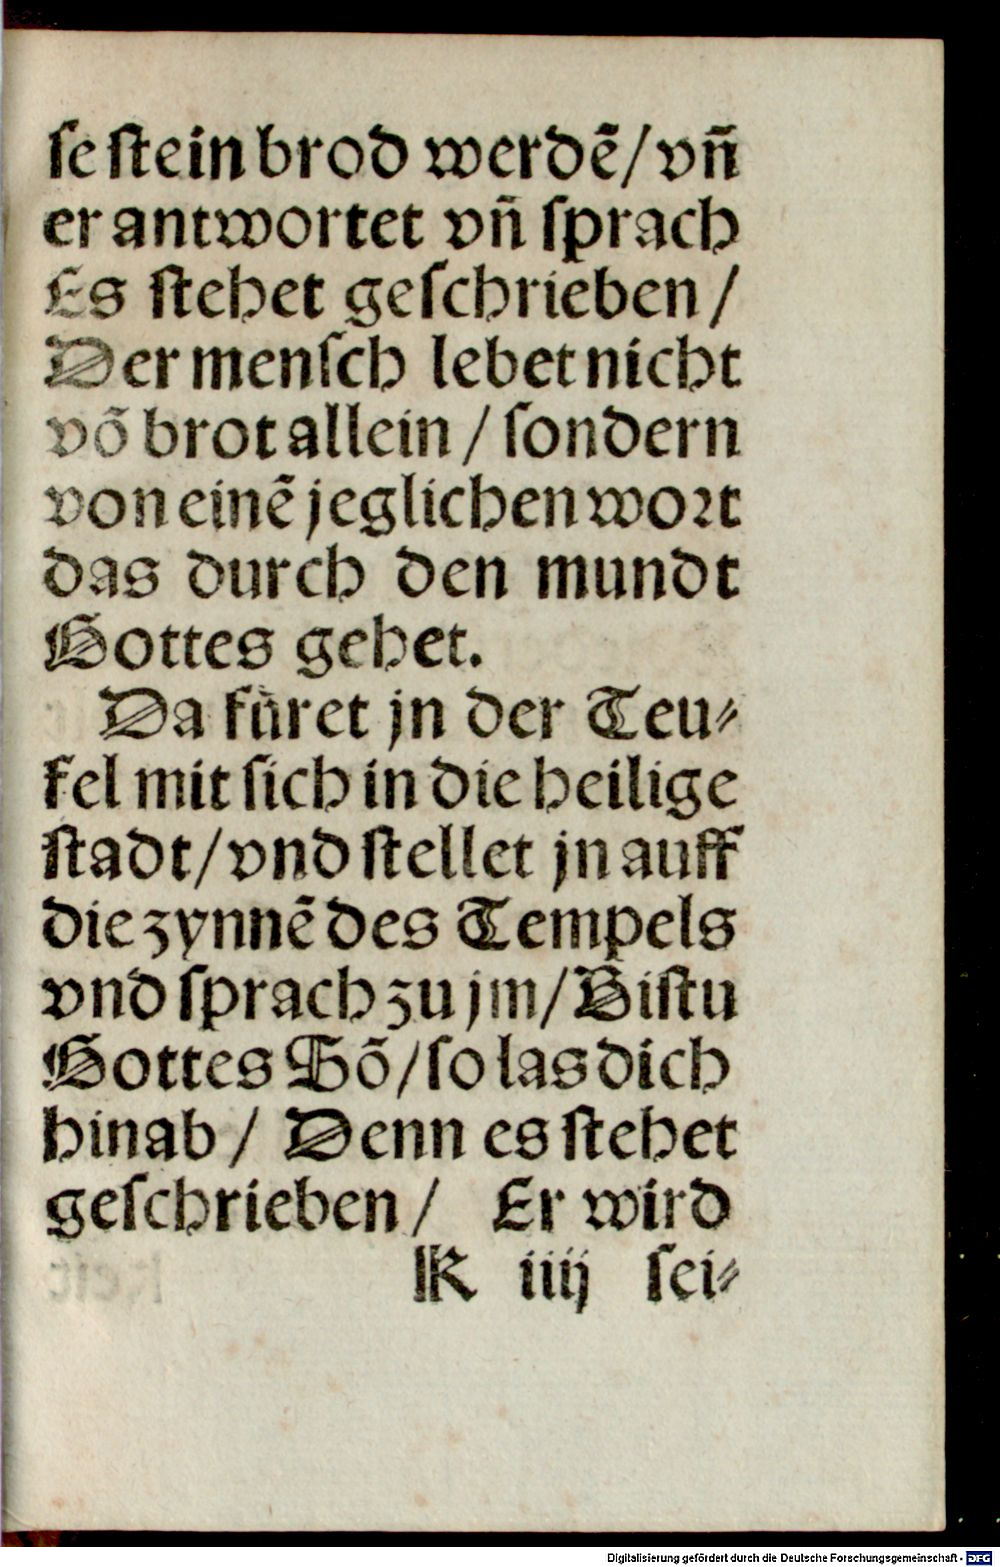 ſe ſtein brod werdẽ/ vñ
er antwortet vñ ſprach
Es ſtehet geſchrieben /
Der menſch lebet nicht
võ brot allein / ſondern
von einẽ jeglichen woꝛt
das durch den mundt
Gottes gehet.
Da fuͤret jn der Teu⸗
fel mit ſich in die heilige
ſtadt/ vnd ſtellet jn auff
die zynnẽ des Tempels
vnd ſprach zu jm/ Biſtu
Gottes Sõ/ ſo las dich
hinab / Denn es ſtehet
geſchrieben / Er wird
K iiij ſei⸗
Digitalisierung gefördert durch die Deutsche Forschungsgemeinschaft - DFG